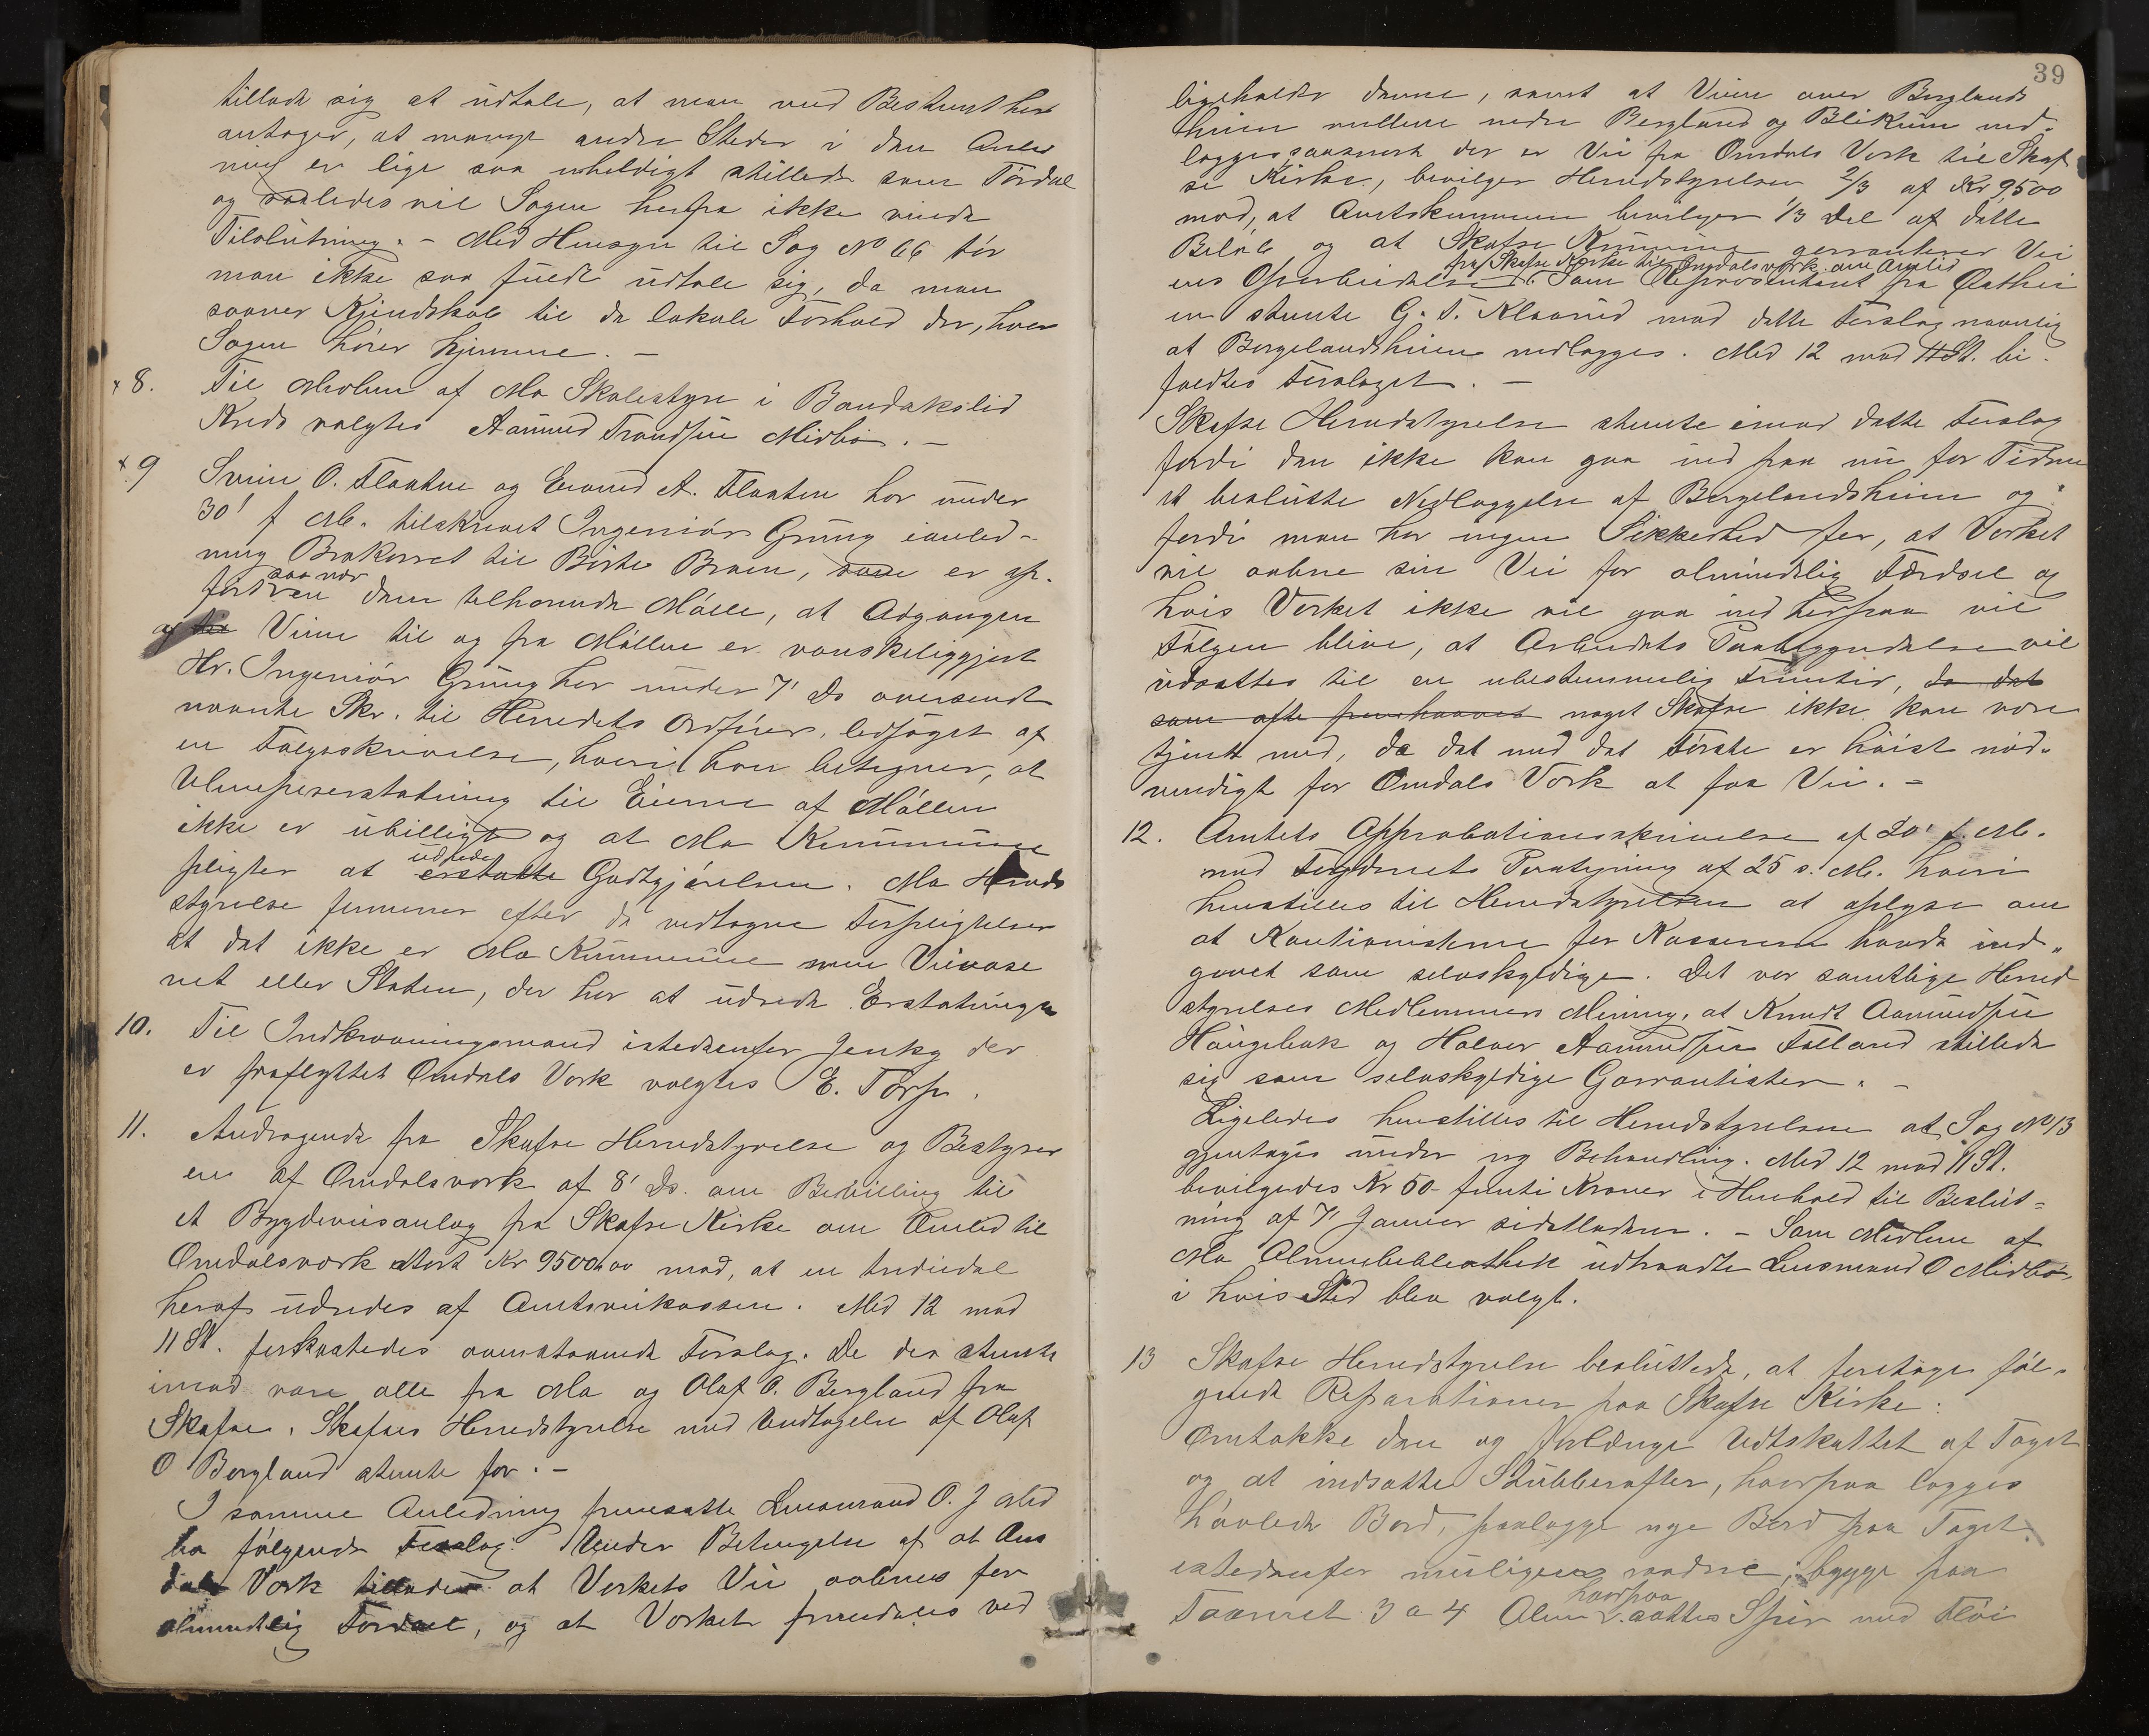 tillade sig at udtale, at man med Bestemthed
antager, at mange andre Steder i den Anled
ning er lige saa uheldigt stillede som Tørdal
og saaledes vil Sagen herfra ikke vinde
Tilslutning. - Med Hensyn til Sag No 66 tør
man ikke saa fuldt udtale sig, da man
savner Kjendskab til de lokale Forhold der, hvor
Sagen hører hjemme. -
x 8. Til Medlem af Mo Skolestyre i Bandakslid
Kreds valgtes Aamund Trondsen Midbø. -
x 9 Svein O. Flaaten og Eivind A. Flaaten har under
30' f. M. tilskrevet Ingeniør Grung ianled-
ning Brokarret til Børte Broen, er op.
saa nær
ført den dem tilhørende Mølle, at Adgangen
af Veien til og fra Møllen er vanskeliggjort
Hr. Ingeniør Grung har under 7' Ds oversendt
nævnte Skr. til Herredets Ordfører, ledsaget af
en Følgeskrivelse, hvori han betegner, at
Ulempeserstatning til Eierne af Møllen
ikke er ubilligt og at Mo Kommune
udrede
pligter at erstatte Godtgjørelsen. Mo Herreds
styrelse formener efter de vedtagne Forpligtelser
at det ikke er Mo Kommune men Veivæse
net eller Staten, der har at udrede Erstatningen
10. Til Indkrævningsmand istedenfor Jenky der
er fraflyttet Omdals Verk valgtes E. Torp.
11. Andragende fra Skafse Herredstyrelse og Bestyrer
en af Omdalsverk af 8' Ds. om Bevilling til
et Bygdeveisanlæg fra Skafse Kirke om Åmlid til
Omdalsverk stort Kr 9500,00 mod, at en trediedel
heraf udredes af Amtsveikassen. Med 12 mod
11 St. forkastedes ovenstaaende Forslag. De der stemte
imod vare alle fra Mo og Olaf O. Bergland fra
Skafse. Skafses Herredstyrelse med Undtagelse af Olaf
O Bergland stemte for. -
I samme Anledning fremsatte Lensmand O. J Mid
bø følgende Forslag: Under Betingelse af at Om
dals Verk tillader at Verkets Vei aabnes for
almindelig Færdsel, og at Verket fremdeles ved
39
ligeholder denne, samt at Veien over Berglands
heien mellem nedre Bergland og Blikum ned-
lægges saasnart der er Vei fra Omdals Verk til Skaf
se Kirke, bevilger Herredstyrelsen 2/3 af Kr 9500
mod, at Amtskommunen bevilger 1/3 Del af dette
Beløb og at Skafse Kommune garranterer Vei
fra Skafse Kirke til Omdalsverk om Åmlid
ens Oparbeidelse Som Repræsentant fra Østhei
en stemte G. T. Klaarud mod dette Forslag navnlig
at Bergelandsheien nedlægges. Med 12 mod 11 St. bi-
faldtes Forslaget. -
Skafse Herredstyrelse stemte imod dette Forslag
fordi den ikke kan gaa ind paa nu for Tiden
at beslutte Nedlæggelse af Bergelandsheien og
fordi man har ingen Sikkerhed for, at Verket
vil aabne sin Vei for almindelig Færdsel og
hvis Verket ikke vil gaa ind herpaa vil
Følgen blive, at Arbeidets Paabegyndelse vil
udsættes til en ubestemmelig Fremtid, da det
som ofte fremhævet noget Skafse ikke kan være
tjent med, da det med det Første er høist nød-
vendigt for Omdals Verk at faa Vei. -
12. Amtets Approbationsskrivelse af 20' f. M.
med Fogderiets Paategning af 25 s. M. hvori
henstilles til Herredstyrelsen at oplyse om
at Kautionisterne for Kasseren havde ind-
gaaet som selvskyldige. Det var samtlige Herred
styrelses Medlemmers Mening, at Knudt Aamundsen
Haugebak og Halvor Aamundsen Følland stillede
sig som selvskyldige Garrantister. -
Ligeledes henstilles til Herredstyrelsen at Sag No 13
gjentages under ny Behandling. Med 12 mod 11 St.
bevilgedes Kr 50 - femti Kroner i Henhold til Beslut-
ning af 7' Januar sidstleden. - Som Medlem af
Mo Almuebibliothek udtraadte Lensmand O Midbø,
i hvis Sted blev valgt.
13 Skafse Herredstyrelse besluttede, at foretage føl-
gende Reparationer paa Skafse Kirke:
Omtække den og forlænge Udtskuttet af Taget
og at indsætte Stubberafter, hvorpaa lægges
høvlede Bord, paalægge nye Bord paa Taget
istedenfor muligens raadne, bygge paa
hvorpaa
Taarnet 3 a 4 Alen sættes Spir med Fløi